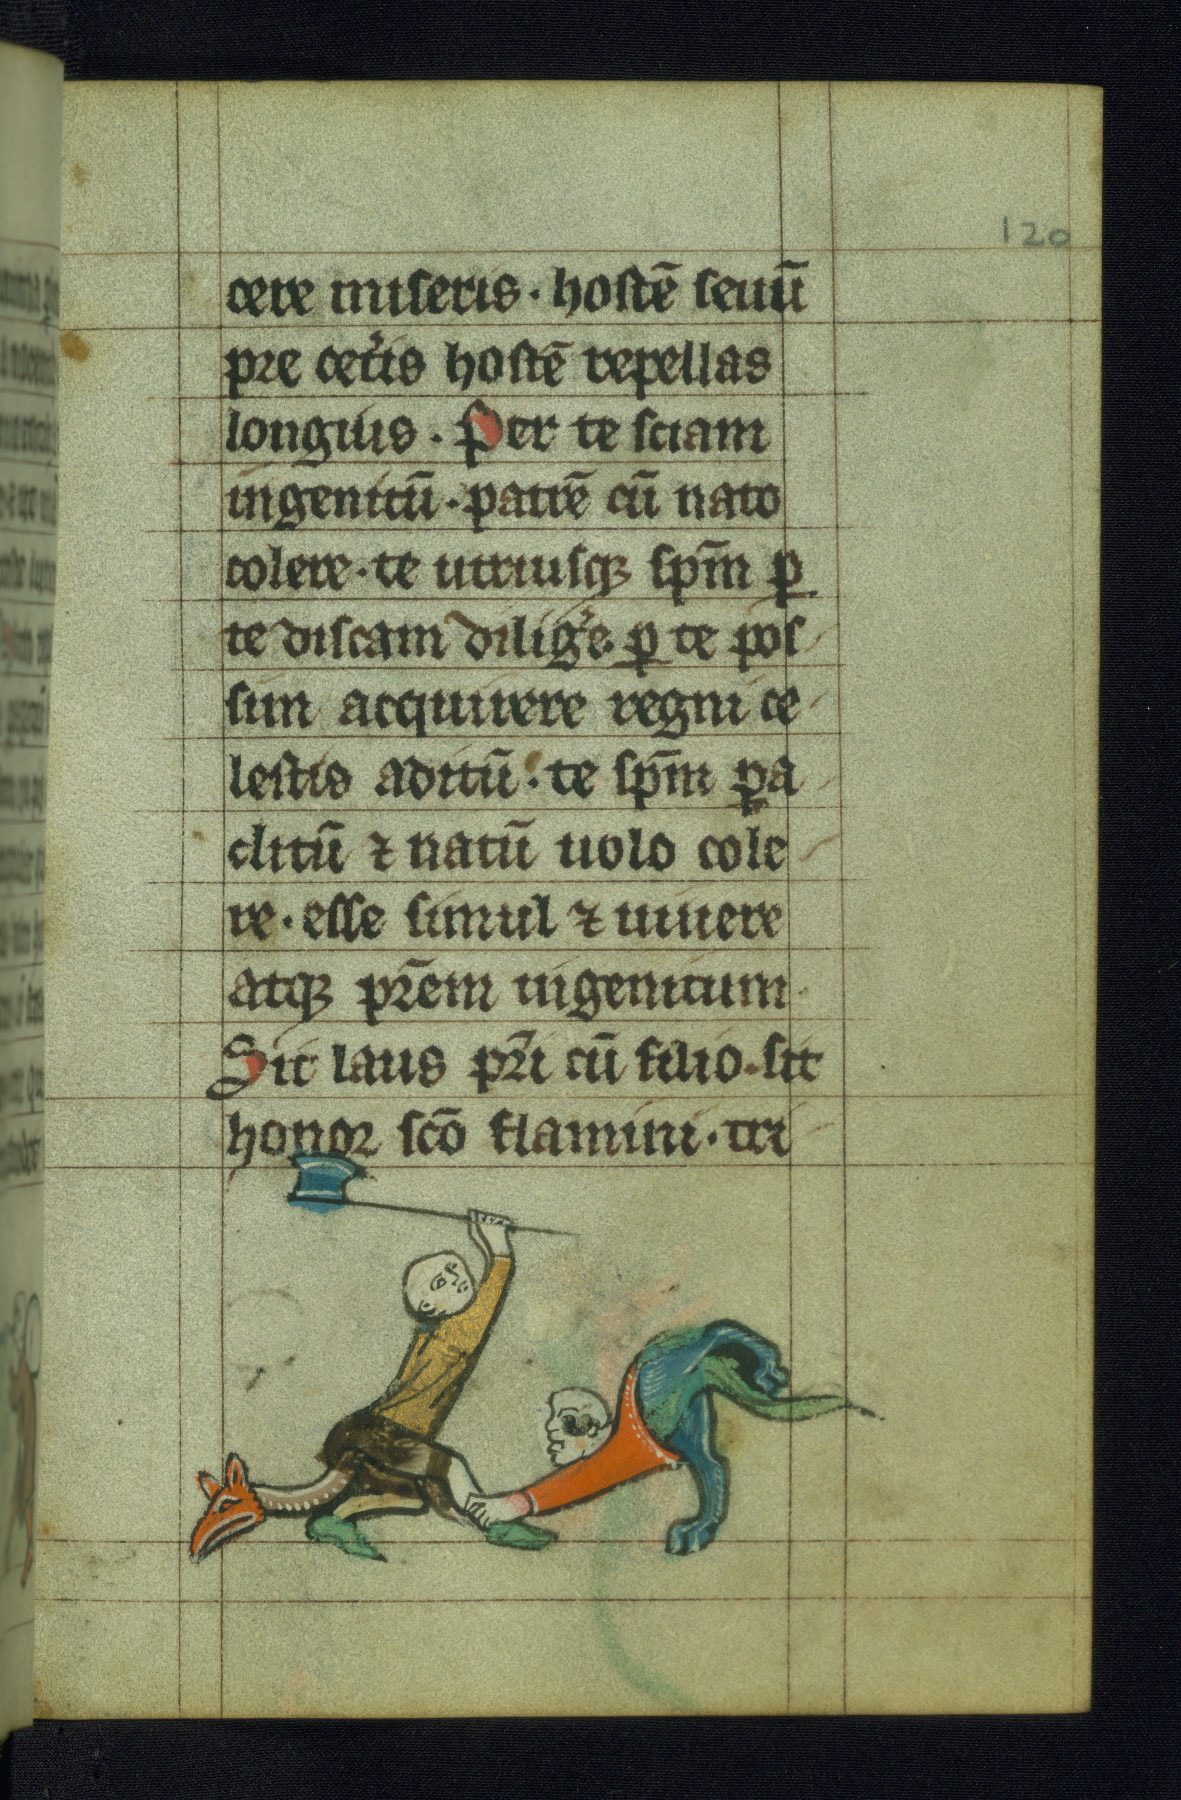 120
cere miseris · hostē seuū
pre cet̉is hostē repellas
longius · Per te sciam
ingenitū · patrē cū nato
colere · te utriusqꝫ sp̄m ꝑ
te discam dilig̉e · ꝑ te pos
sim acquirere regni ce
lestis aditū · te sp̄m pa
clitū ⁊ natū uolo cole
re · esse simul ⁊ uiuere
atqꝫ pr̄em ingenitum
Sit laus pr̄i cū filio · sit
honor sc̄o flamini · tri